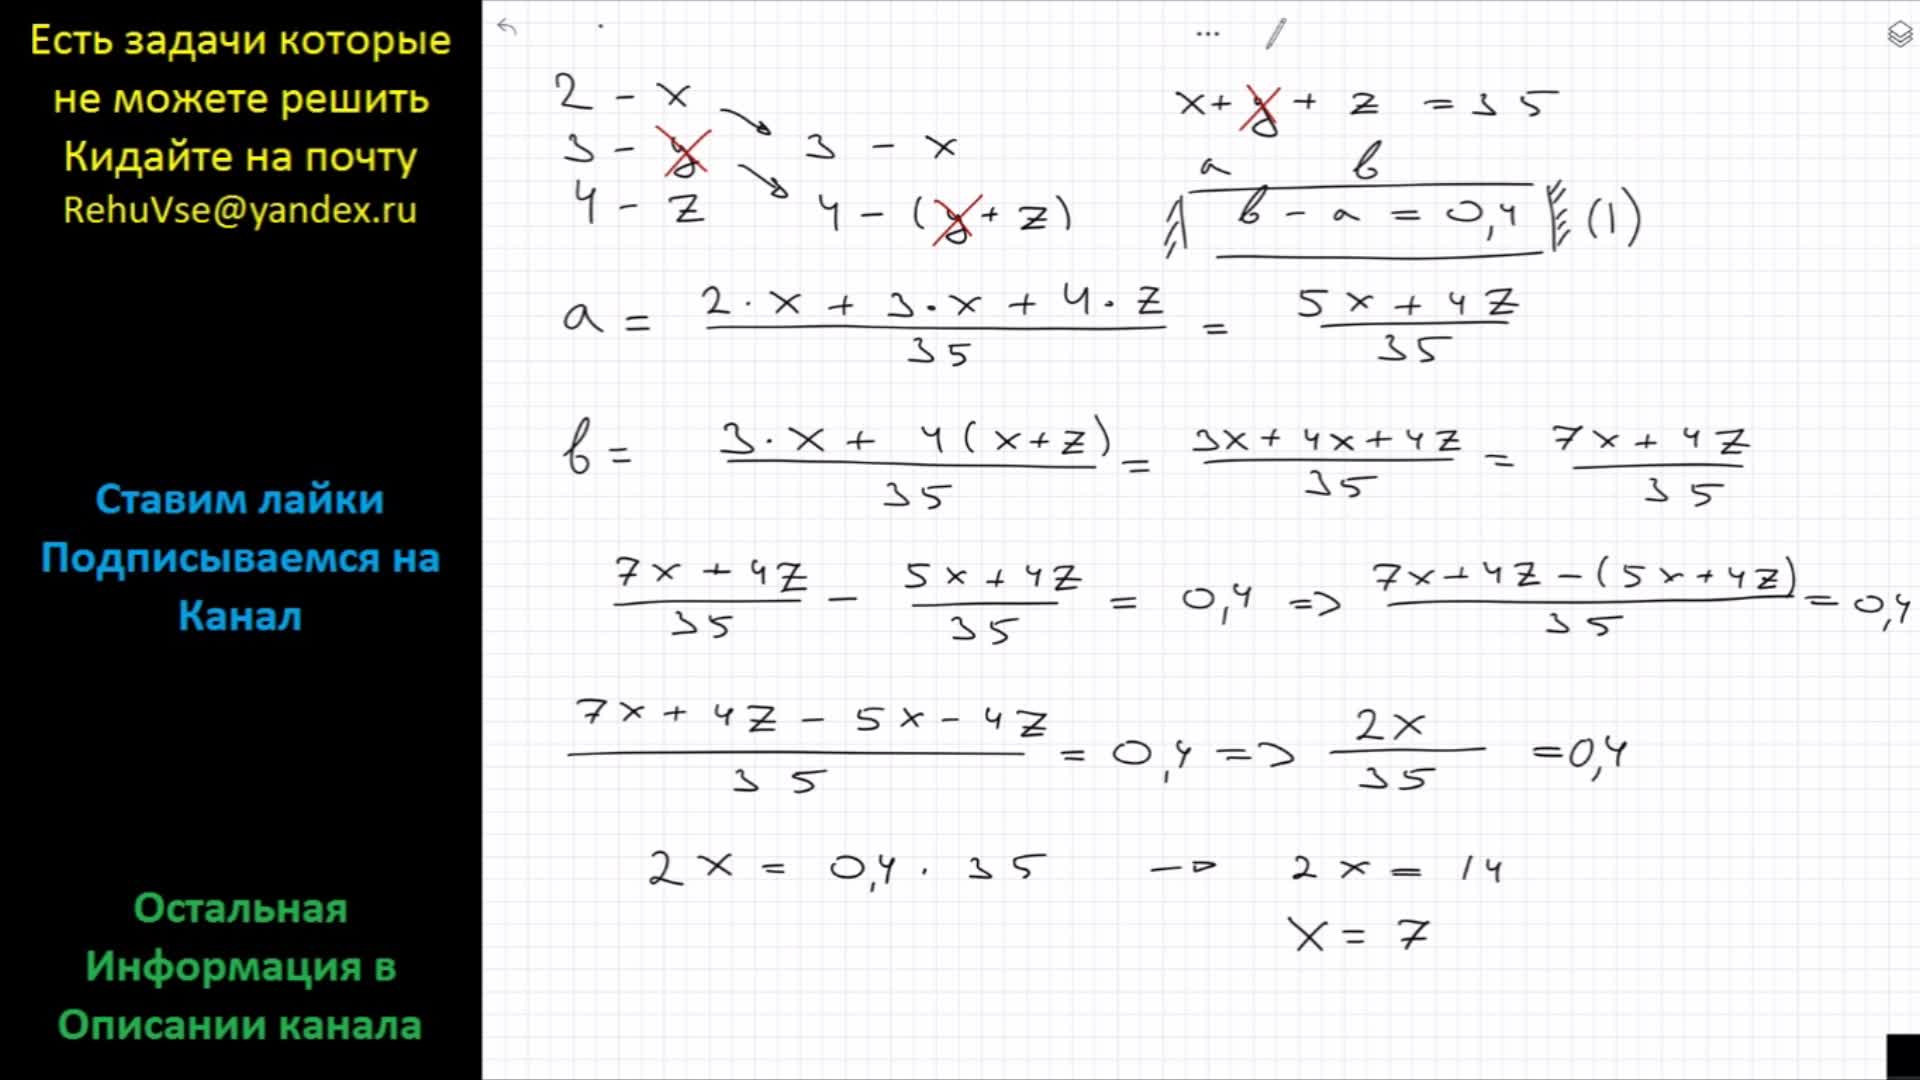 Есть задачи которые
не можете решить
Кидайте на почту
RehuVse@yandex.ru
Ставим лайки
Подписываемся на
Канал
Остальная
Информация в
Описании канала
2 - x
3 - y
4 - z
3 - x
4 - (y + z)
x + y + z = 35
a в
в - a = 0,4 (1)
a = (2 · x + 3 · x + 4 · z)/35 = (5x + 4z)/35
в = (3 · x + 4(x+z))/35 = (3x + 4x + 4z)/35 = (7x + 4z)/35
(7x + 4z)/35 - (5x + 4z)/35 = 0,4 => (7x + 4z - (5x + 4z))/35 = 0,4
(7x + 4z - 5x - 4z)/35 = 0,4 => 2x/35 = 0,4
2x = 0,4 · 35 → 2x = 14
x = 7